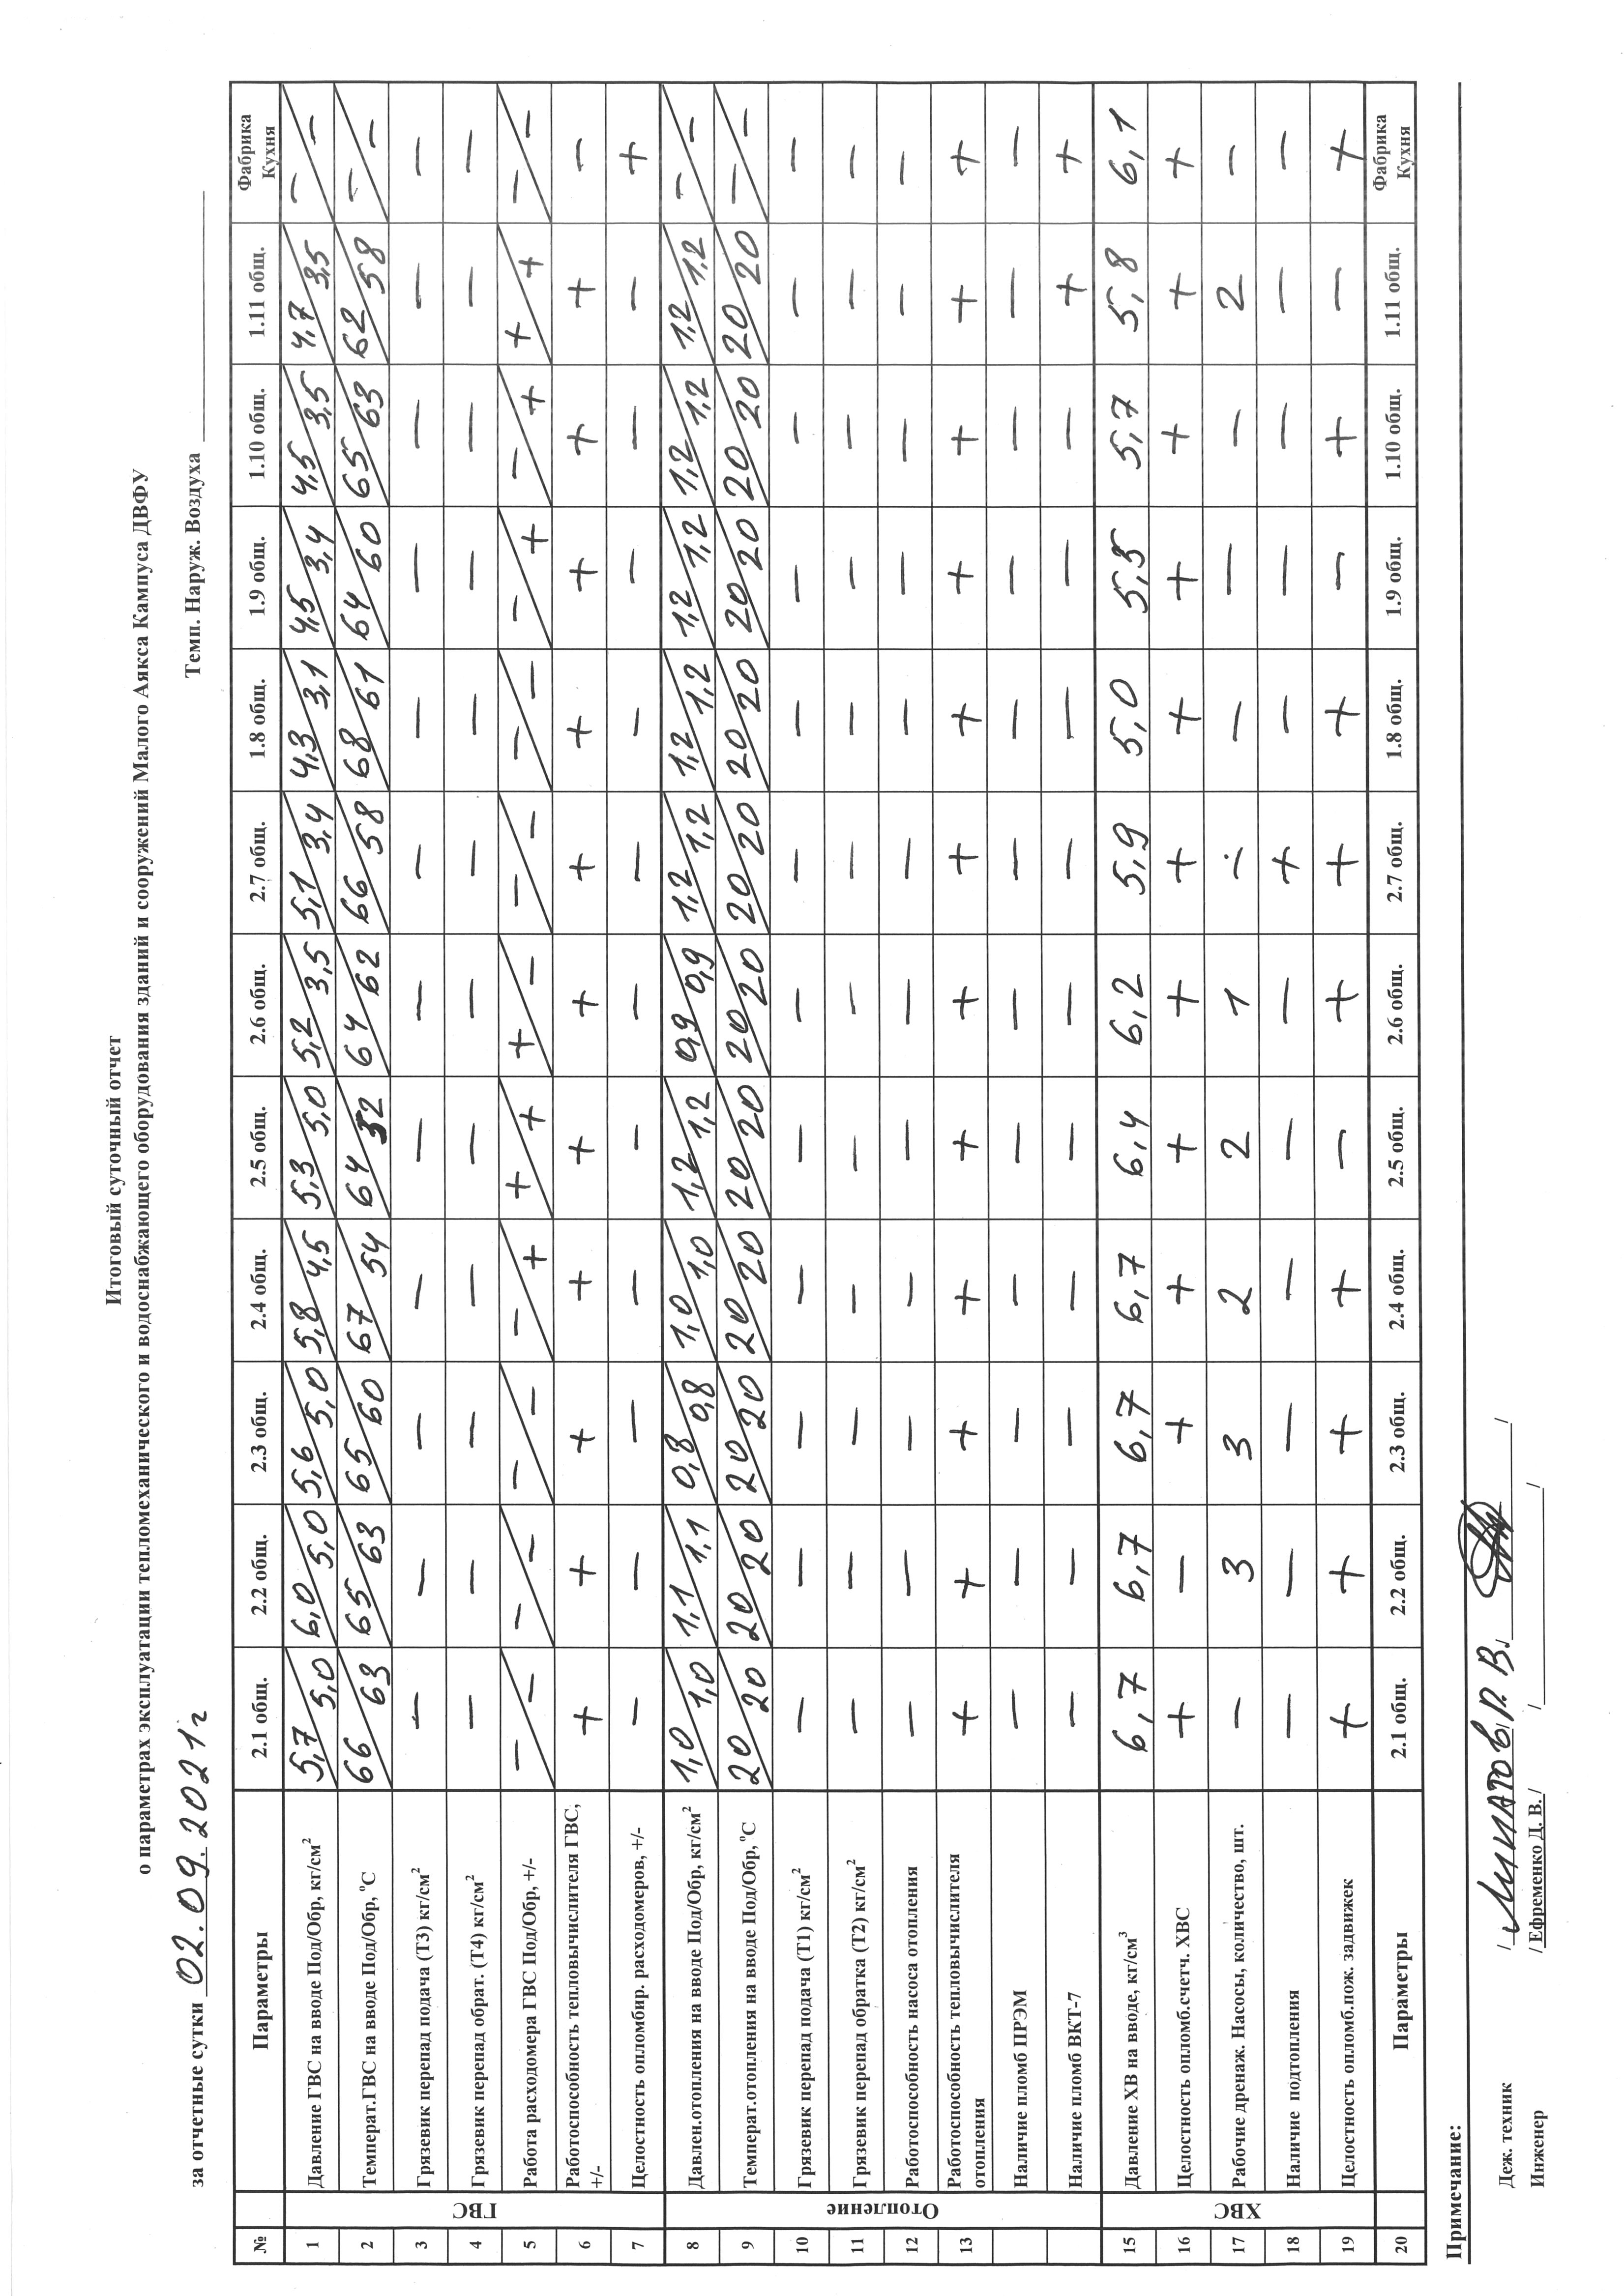 Итоговый суточный отчет
о параметрах эксплуатации тепломеханического и водоснабжающего оборудования зданий и сооружений Малого Аякса Кампуса ДВФУ
за отчетные сутки 02.09.2021г Темп. Наруж. Воздуха
№ Параметры 2.1 общ. 2.2 общ. 2.3 общ. 2.4 общ. 2.5 общ. 2.6 общ. 2.7 общ. 1.8 общ. 1.9 общ. 1.10 общ. 1.11 общ. Фабрика Кухня
ГВС
1 Давление ГВС на вводе Под/Обр, кг/см² 5,7/5,0 6,0/5,0 5,6/5,0 5,8/4,5 5,3/5,0 5,2/3,5 5,1/3,4 4,3/3,1 4,5/3,4 4,5/3,5 4,7/3,5 –/–
2 Температ.ГВС на вводе Под/Обр, °С 66/63 65/63 65/60 67/54 64/52 64/62 66/58 68/61 64/60 65/63 62/58 –/–
3 Грязевик перепад подача (Т3) кг/см² – – – – – – – – – – – –
4 Грязевик перепад обрат. (Т4) кг/см² – – – – – – – – – – – –
5 Работа расходомера ГВС Под/Обр, +/- –/– –/– –/– –/+ +/+ +/– –/– –/– –/+ –/+ +/+ –/–
6 Работоспособность тепловычислителя ГВС, +/- + + + + + + + + + + + –
7 Целостность опломбир. расходомеров, +/- – – – – – – – – – – – +
Отопление
8 Давлен.отопления на вводе Под/Обр, кг/см² 1,0/1,0 1,1/1,1 0,8/0,8 1,0/1,0 1,2/1,2 0,9/0,9 1,2/1,2 1,2/1,2 1,2/1,2 1,2/1,2 1,2/1,2 –/–
9 Температ.отопления на вводе Под/Обр, °С 20/20 20/20 20/20 20/20 20/20 20/20 20/20 20/20 20/20 20/20 20/20 –/–
10 Грязевик перепад подача (Т1) кг/см² – – – – – – – – – – – –
11 Грязевик перепад обратка (Т2) кг/см² – – – – – – – – – – – –
12 Работоспособность насоса отопления – – – – – – – – – – – –
13 Работоспособность тепловычислителя отопления + + + + + + + + + + + +
Наличие пломб ПРЭМ – – – – – – – – – – – –
Наличие пломб ВКТ-7 – – – – – – – – – – + +
ХВС
15 Давление ХВ на вводе, кг/см³ 6,7 6,7 6,7 6,7 6,4 6,2 5,9 5,0 5,5 5,7 5,8 6,1
16 Целостность опломб.счетч. ХВС + – + + + + + + + + + +
17 Рабочие дренаж. Насосы, количество, шт. – 3 3 2 2 1 – – – – 2 –
18 Наличие подтопления – – – – – – + – – – – –
19 Целостность опломб.пож. задвижек + + + + – + + + – + – +
20 Параметры 2.1 общ. 2.2 общ. 2.3 общ. 2.4 общ. 2.5 общ. 2.6 общ. 2.7 общ. 1.8 общ. 1.9 общ. 1.10 общ. 1.11 общ. Фабрика Кухня
Примечание:
Деж. техник / Липатов Р. В. / /
Инженер / Ефременко Д. В. / / /